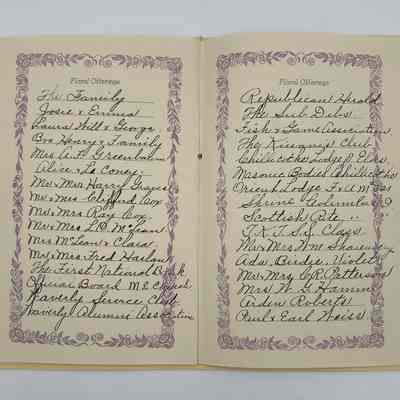 Floral Offerings
The Family
Josie & Emma
Laura Will & George
Bro Henry & Family
Mrs A. F. Greenbaum
Alice & La Coney
Mr & Mrs Harry Graves
Mr & Mrs Clifford Cox
Mr & Mrs Ray Cox
Mr & Mrs L.D. McLean
Mrs McLean & Clara
Mr & Mrs Fred Harlow
The First National Bank
Official Board M E Church
Waverly Service Club
Waverly Alumni Association
Floral Offerings
Republican Herald
The Sub Debs
Fish & Game Association
The Kiwanis Club
Chillicothe Lodge Elks
Masonic Bodies Chillicothe
Orient Lodge F & A M
Shrine Columbus O
Scottish Rite " "
T.K.T. S.S. Class
Mr & Mrs Wm
Ada, Birdie, Violet
Mr & Mrs C R Patterson
Mrs W G Hamm
Arden Roberts
Paul & Earl Weiss